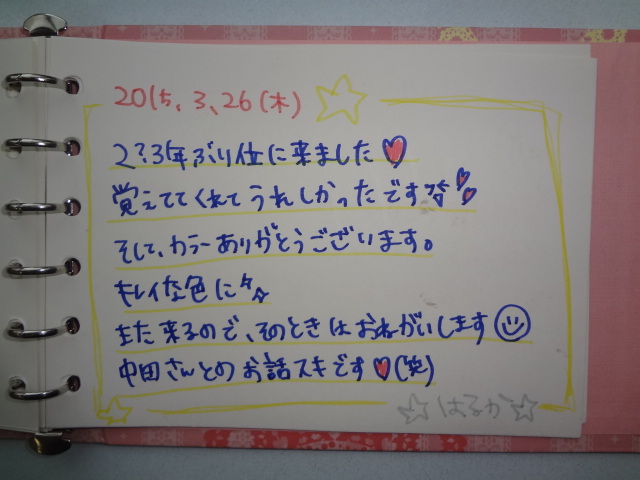 2015、3、26(木)
2?3年ぶり位に来ました♥
覚えててくれてうれしかったです!!
そして、カラーありがとうございます。
キレイな色に
また来るので、そのときはおねがいします☺
中田さんとのお話スキです♥(笑)
☆はるか☆